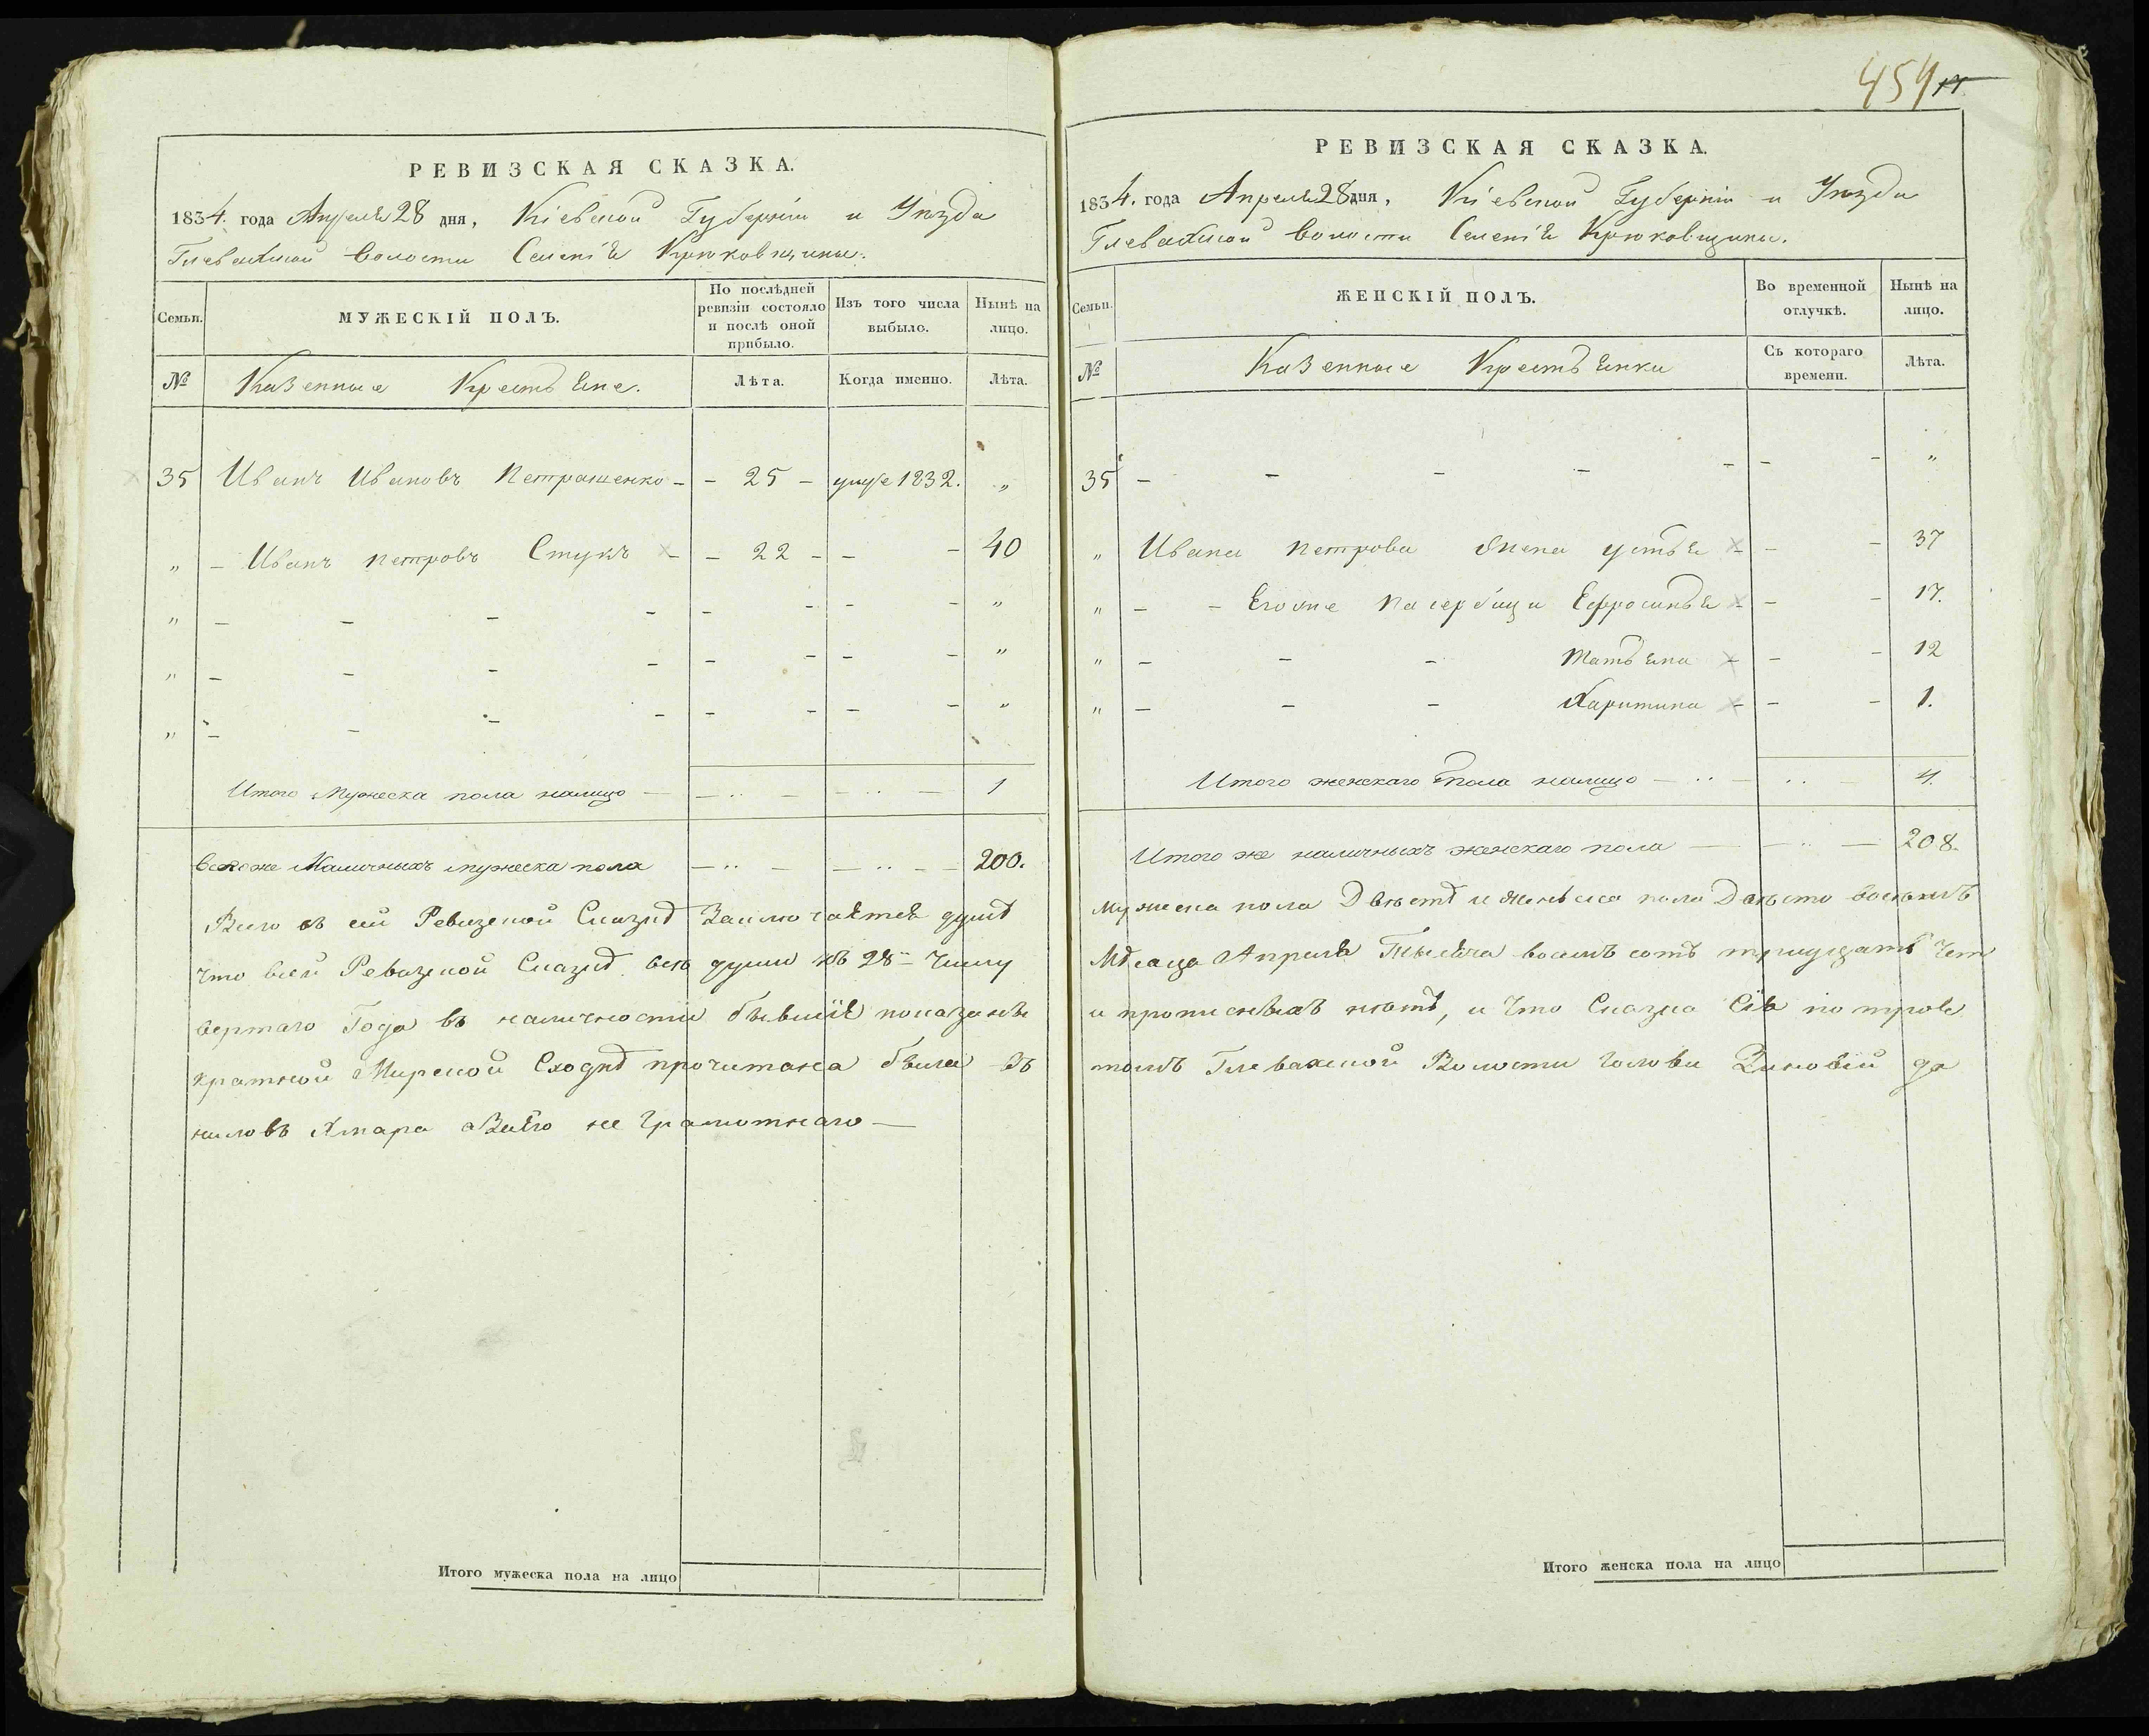 454
РЕВИЗСКАЯ СКАЗКА.
1834. года Апреля 28 дня, Кіевской Губерніи и Уѣзда
Глевахской волости Селенія Крюковщины.
Семьи.
МУЖЕСКІЙ ПОЛЪ.
По послѣдней ревизіи состояло и послѣ оной прибыло.
Изъ того числа выбыло.
Нынѣ на лицо.
№ Казенные Крестьяне. Лѣта. Когда именно. Лѣта.
35 Иванъ Ивановъ Петрашенко - - 25 - 1832. „
„ - Иванъ Петровъ Стукъ - - 22 - - - 40
„ - - - - - - - - „
„ - - - - - - - - „
„ - - - - - - - - „
Итого Мужеска пола налицо 1
Всехже Наличныхъ мужеска пола 200.
Всего въ сей Ревизской Сказкѣ Заключается душъ
Что всей Ревизской Сказкѣ всѣ души къ 28 Числу
вертаго Года въ наличности бывшіе показаны
кратной Мирской Сходкѣ прочитана была въ
ниловъ Хмара Заего не Грамотнаго —
Итого мужеска пола на лицо
РЕВИЗСКАЯ СКАЗКА.
1834. года Апреля 28 дня, Кіевской Губерніи и Уѣзда
Глевахской волости Селенія Крюковщины.
Семьи.
ЖЕНСКІЙ ПОЛЪ.
Во временной отлучкѣ.
Нынѣ на лицо.
№ Казенные Крестьянки Съ котораго времени. Лѣта.
35 - - - - - - - „
„ Ивана Петрова Жена Устья - - - 37
„ - - Егоже Пасербицы Ефросинья - - - 17.
„ - - - Татьяна - - - 12
„ - - - Харитина - - - 1.
Итого женскаго пола налицо 4.
Итого же наличныхъ женскаго пола 208.
мужеска пола Двѣстѣ и женска пола Двѣсто восьмъ
Мѣсяца Апреля Тысяча восемъ сотъ тридцать Чет
и прописныхъ нѣтъ, и Что Сказка Сія по трое
томъ Глевахской Волости Голова Зиновій Да
Итого женска пола на лицо